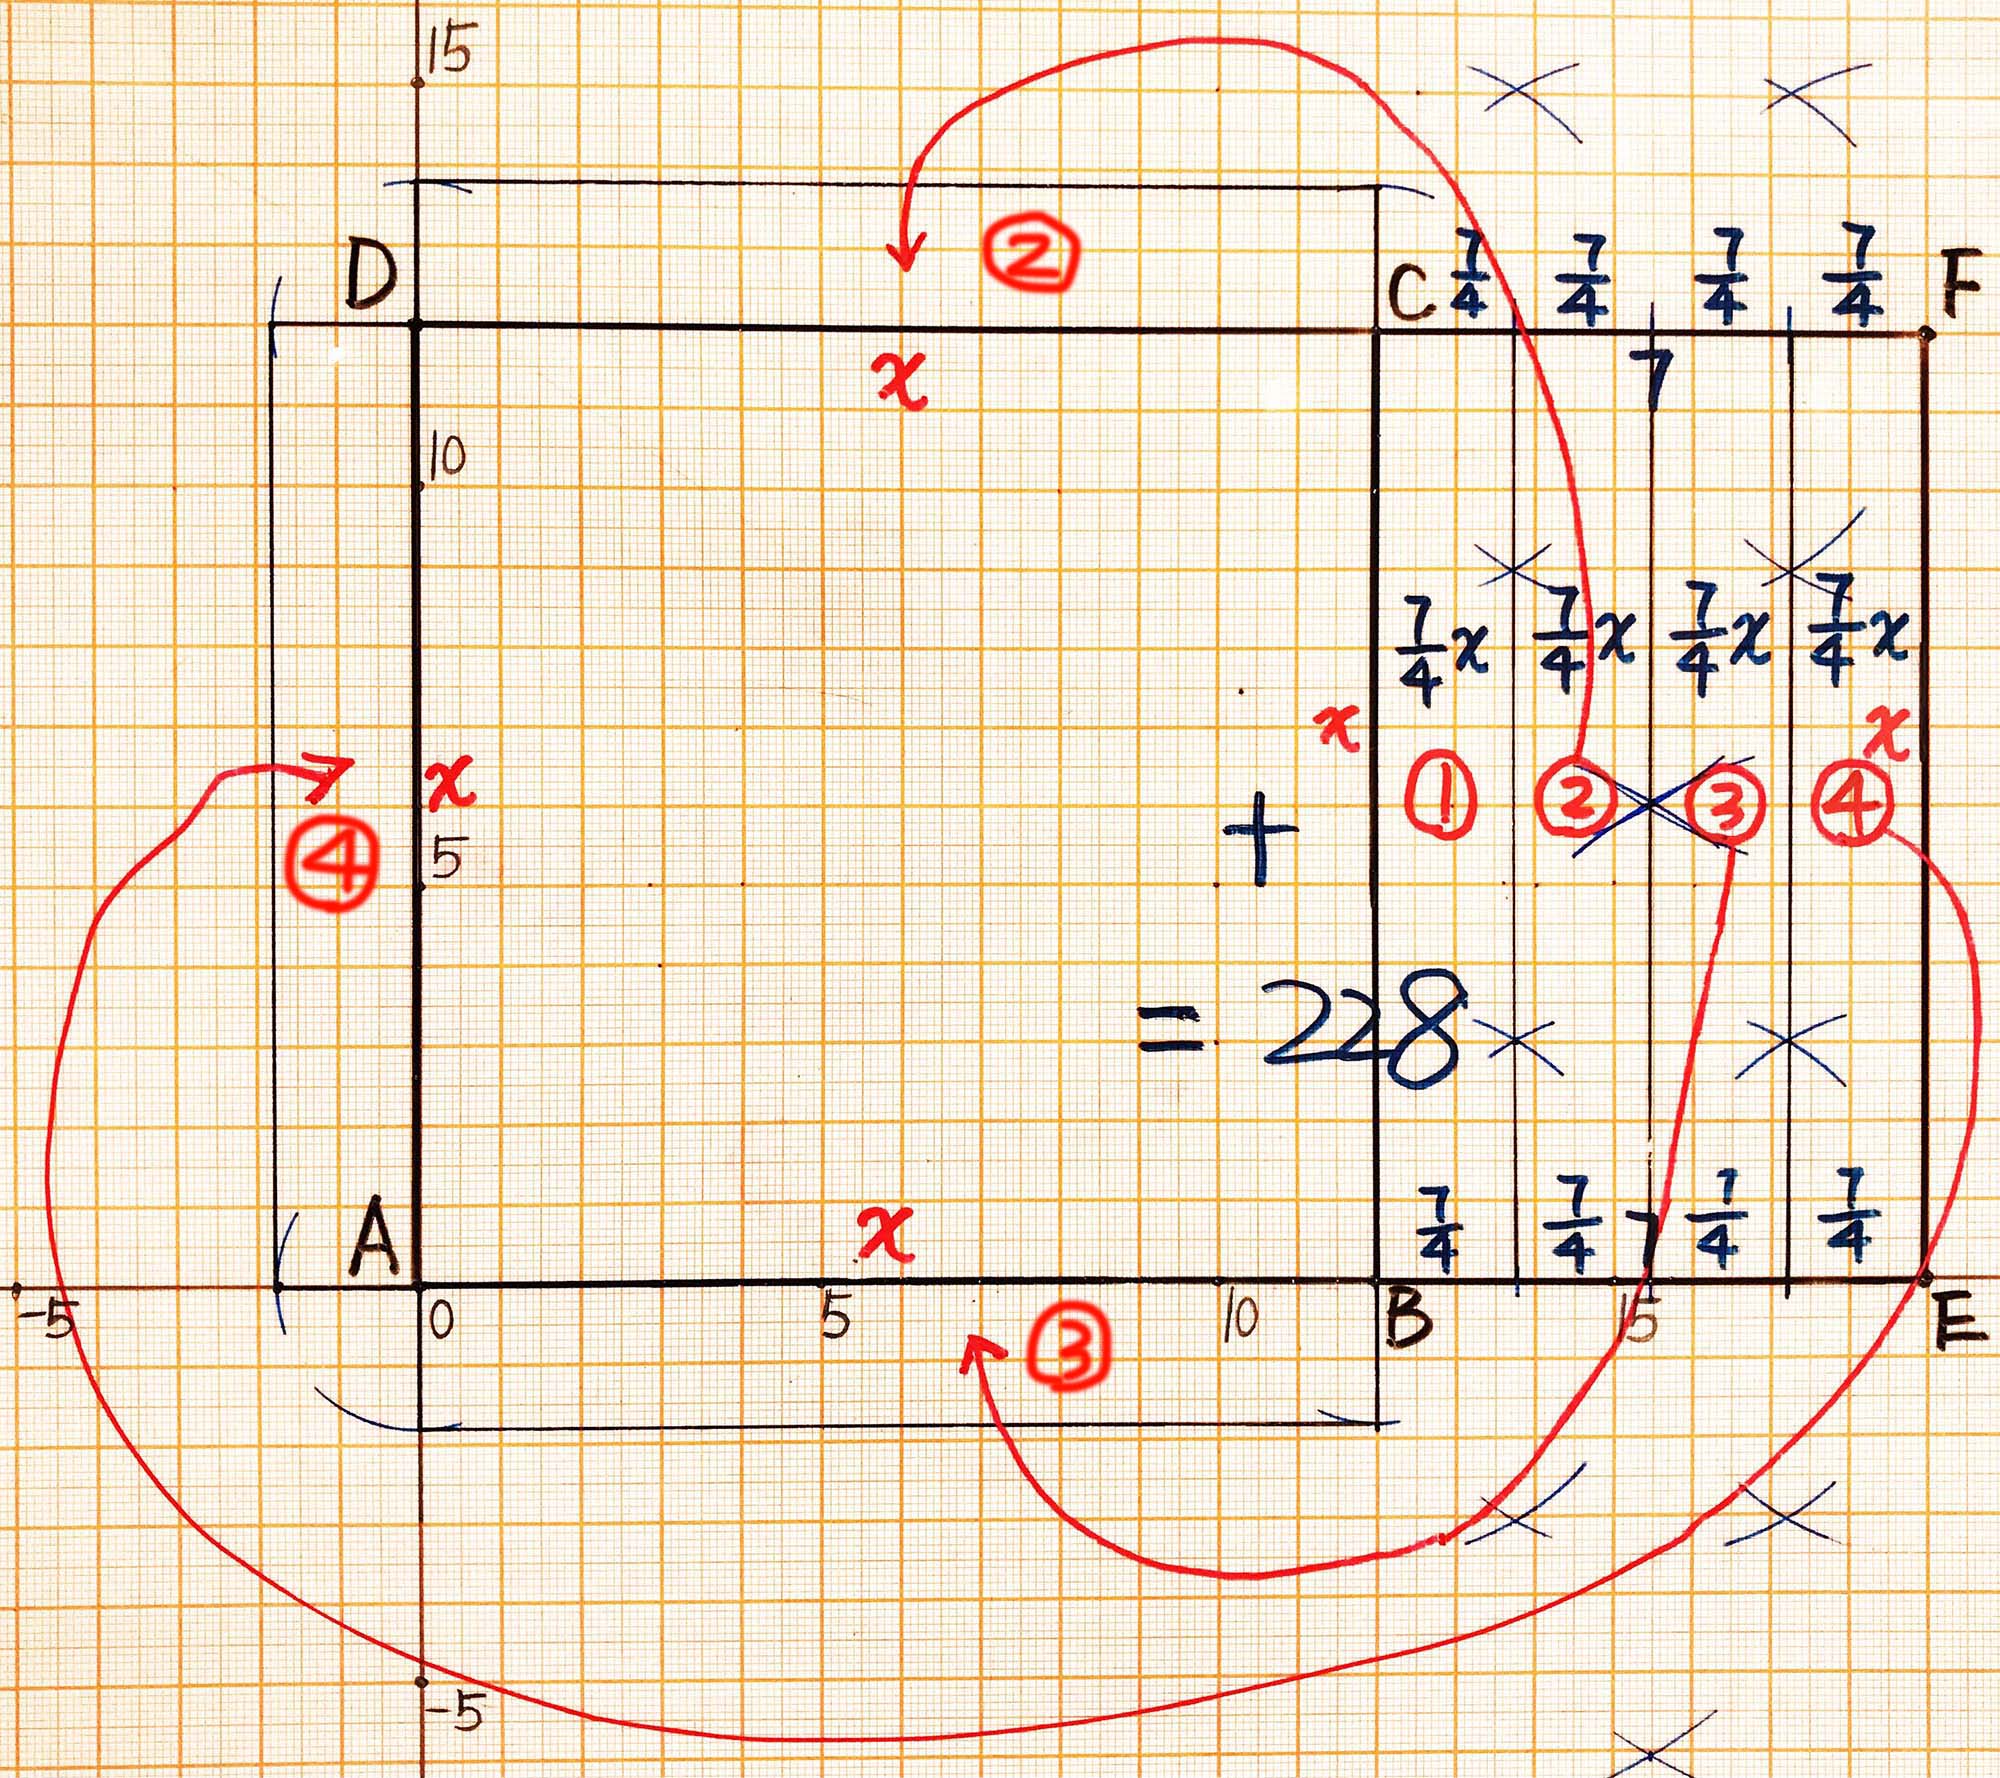 15
D ② C 7/4 7/4 7/4 7/4 F
x 7
10
7/4 x 7/4 x 7/4 x 7/4 x
x x
x + ① ② ③ ④
④ 5
= 228
A x 7/4 7/4 7 7/4 7/4
-5 0 5 10 B 15 E
③
-5